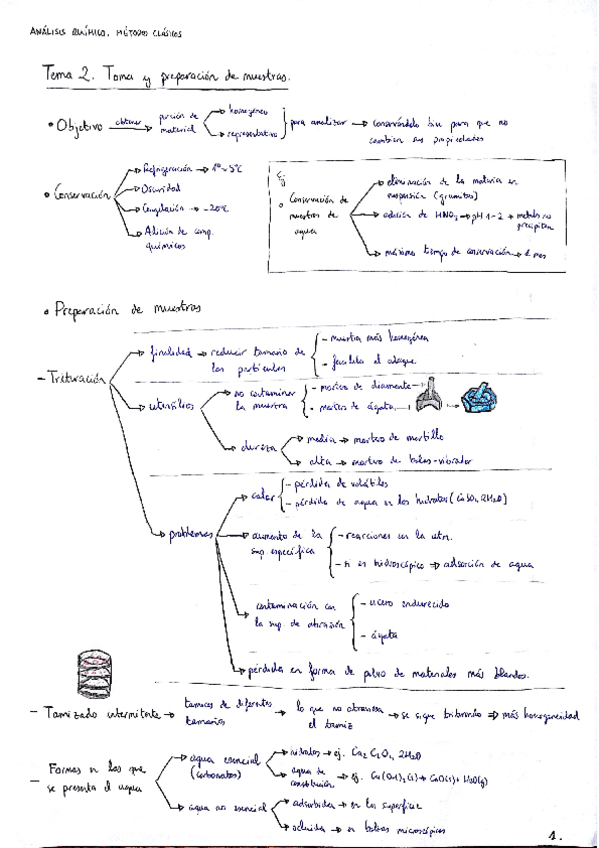 ANÁLISIS QUÍMICO. MÉTODOS CLÁSICOS
Tema 2. Toma y preparación de muestras.
• Objetivo obtener porción de material → homogéneo
→ representativo
para analizar → conservándola bien para que no cambien sus propiedades
• Conservación → Refrigeración → 1º-5ºC
→ Oscuridad
→ Congelación → -20ºC
→ Adición de comp. químicos
Ej
• Conservación de muestras de agua → eliminación de la materia en suspensión (grumitos)
→ adición de HNO3 → pH 1-2 → metales no precipiten
→ máximo tiempo de conservación → 1 mes
• Preparación de muestras
- Trituración → finalidad → reducir tamaño de las partículas
- muestra más homogénea
- facilita el ataque.
→ utensilios → no contaminar la muestra
- mortero de diamante →
- mortero de ágata →
→ dureza → media → mortero de martillo
→ alta → mortero de bolas-vibrador
→ problemas → calor
- pérdida de volátiles
- pérdida de agua en los hidratos (CaSO4 2H2O)
→ aumento de la sup. específica
- reacciones con la atm.
- si es hidroscópico → adsorción de agua
→ contaminación con la sup. de abrasión
- acero endurecido
- ágata
→ pérdida en forma de polvo de materiales más blandos.
- Tamizado intermitente → tamices de diferentes tamaños → lo que no atraviesa el tamiz → se sigue triturando → más homogeneidad
- Formas en las que se presenta el agua → agua esencial (carbonatos) → hidratos → ej. Ca2C2O4 2H2O
→ agua de constitución → ej. Ca(OH)2(s) → CaO(s) + H2O(g)
→ agua no esencial → adsorbida → en la superficie
→ ocluida → en bolsas microscópicas
1.